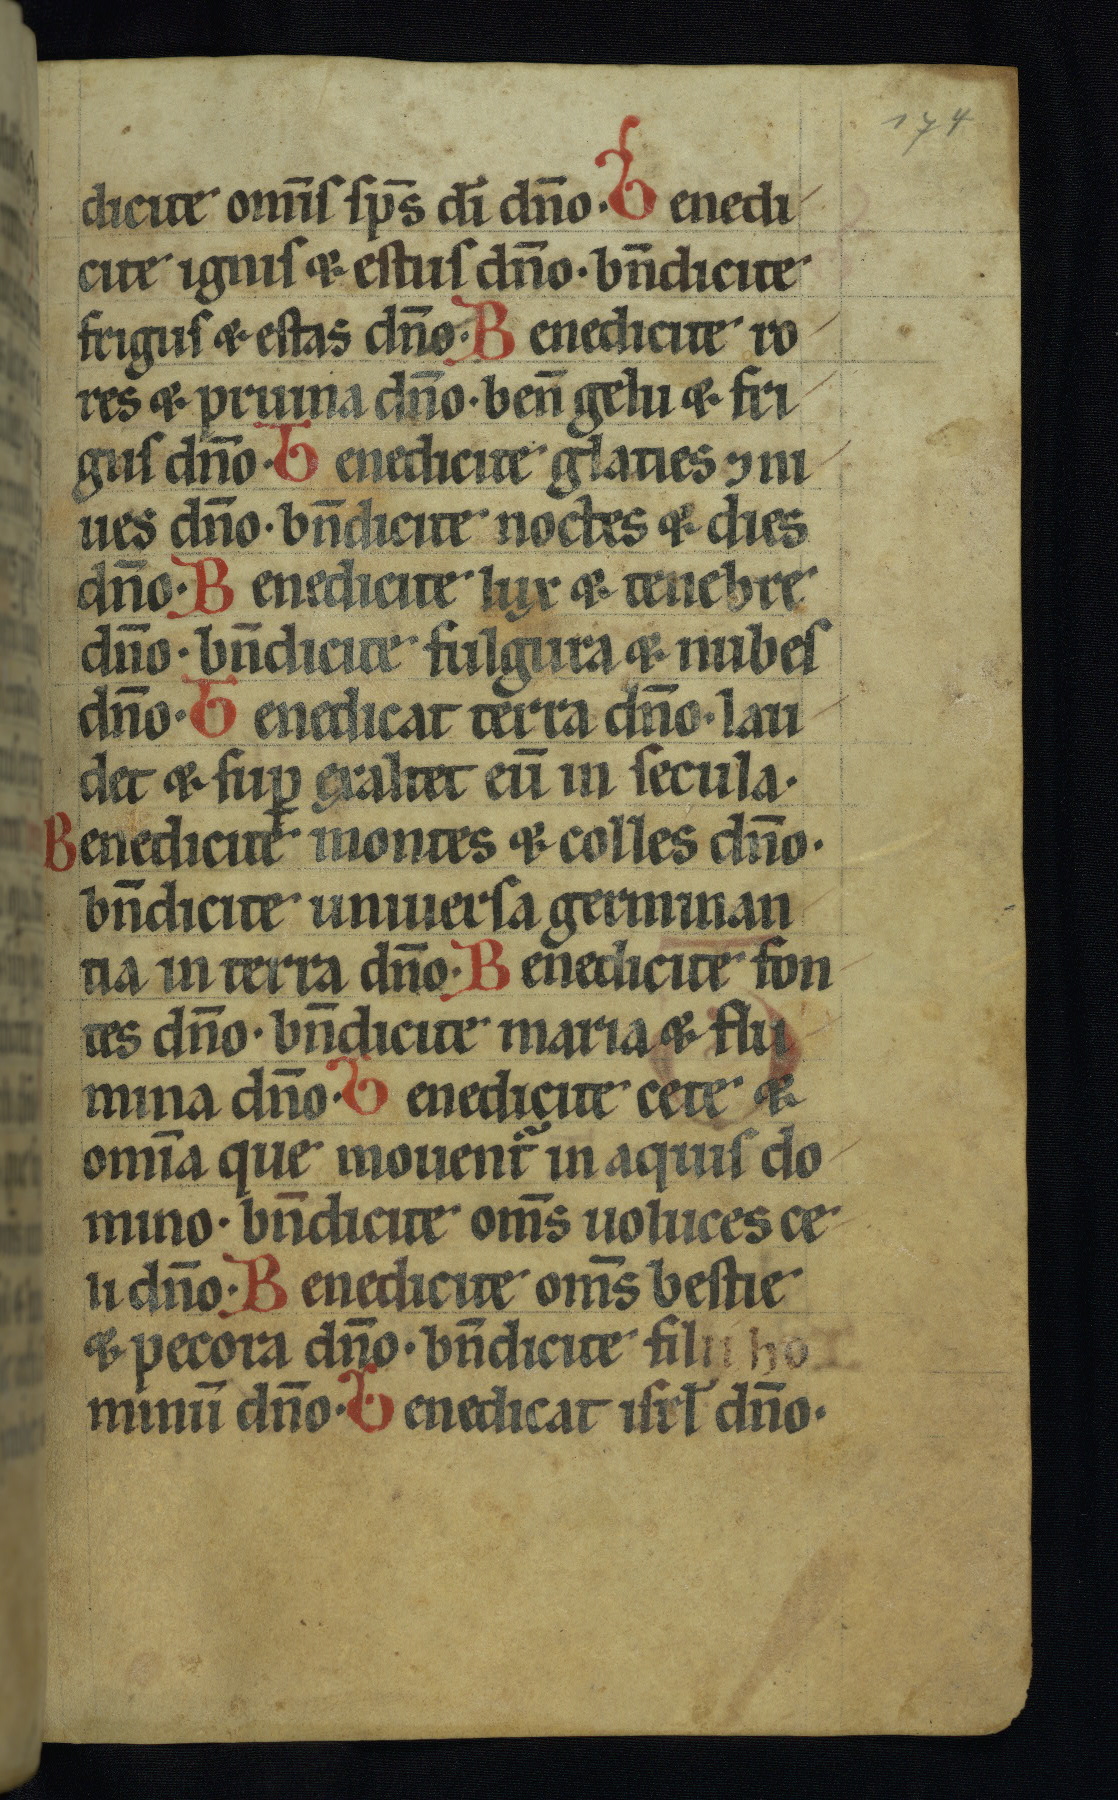 174
dicite om̄is sp̄s dī dn̄o. Benedi
cite ignis & estus dn̄o. bn̄dicite
frigus & estas dn̄o. Benedicite ro
res & pruina dn̄o. ben̄ gelu & fri
gus dn̄o. Benedicite glacies ⁊ ni
ues dn̄o. bn̄dicite noctes & dies
dn̄o. Benedicite lux & tenebre
dn̄o. bn̄dicite fulgura & nubes
dn̄o. Benedicat terra dn̄o. lau
det & suꝑ exaltet eū in secula.
Benedicite montes & colles dn̄o.
bn̄dicite uniuersa germinan
tia in terra dn̄o. Benedicite fon
tes dn̄o. bn̄dicite maria & flu
mina dn̄o. Benedicite cete &
om̄ia que mouent᷑ in aquis do
mino. bn̄dicite om̄s uoluces ce
li dn̄o. Benedicite om̄s bestie
& pecora dn̄o. bn̄dicite filii ho
minū dn̄o. Benedicat isrl̄ dn̄o.